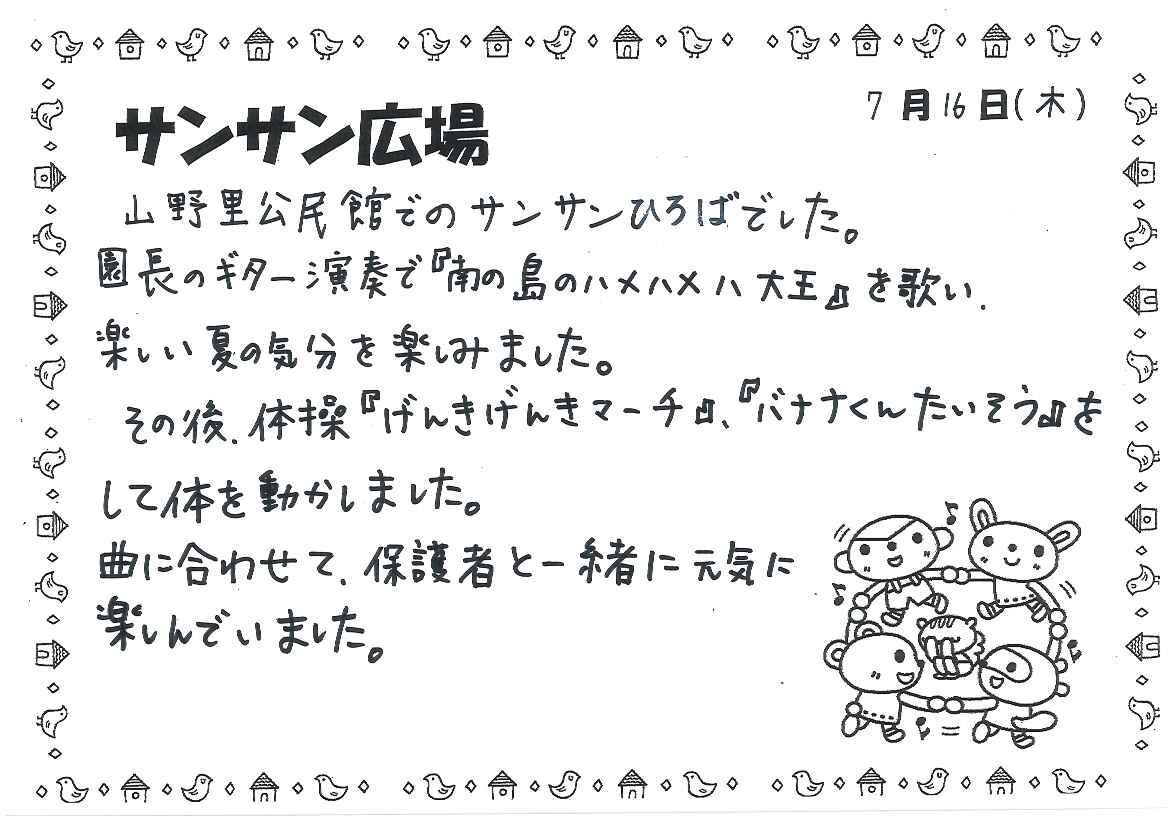 7月16日(木)
サンサン広場
山野里公民館でのサンサンひろばでした。
園長のギター演奏で『南の島のハメハメハ大王』を歌い、
楽しい夏の気分を楽しみました。
その後、体操『げんきげんきマーチ』、『バナナくんたいそう』を
して体を動かしました。
曲に合わせて、保護者と一緒に元気に
楽しんでいました。